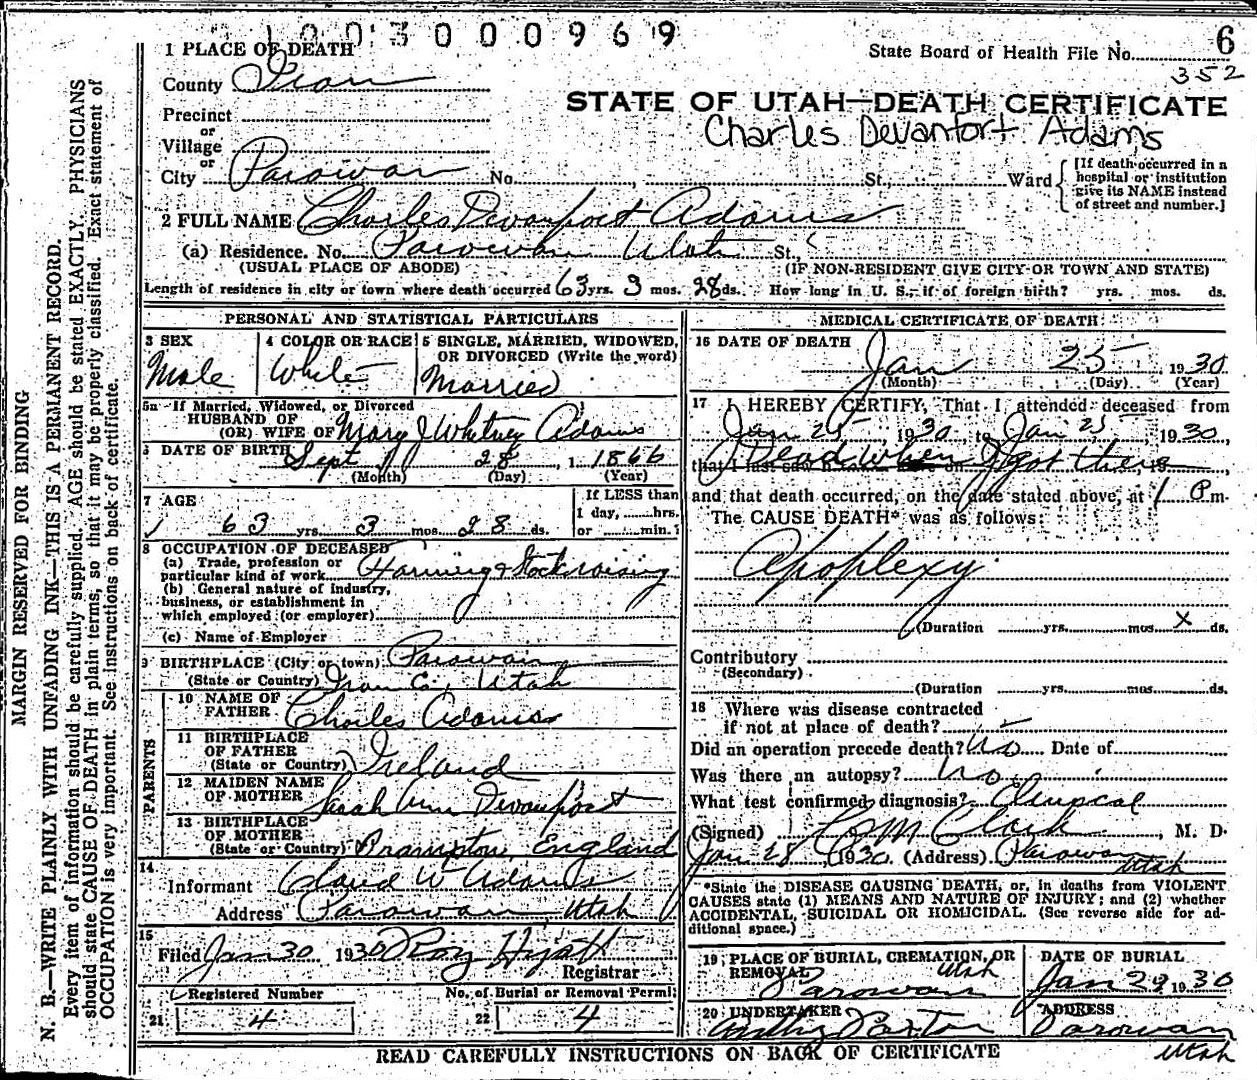 1003000969
6
State Board of Health File No.
352
1 PLACE OF DEATH
County Iron
STATE OF UTAH—DEATH CERTIFICATE
Charles Devanfort Adams
Precinct
or
Village
or
City Parowan No. , St., Ward
[If death occurred in a
hospital or institution
give its NAME instead
of street and number.]
2 FULL NAME Charles Devonport Adams
(a) Residence. No. Parowan Utah St.,
(USUAL PLACE OF ABODE)
(IF NON-RESIDENT GIVE CITY OR TOWN AND STATE)
Length of residence in city or town where death occurred 63 yrs. 3 mos. 28 ds. How long in U. S., if of foreign birth? yrs. mos. ds.
PERSONAL AND STATISTICAL PARTICULARS
3 SEX
Male
4 COLOR OR RACE
White
5 SINGLE, MARRIED, WIDOWED,
OR DIVORCED (Write the word)
Married
5a If Married, Widowed, or Divorced
HUSBAND OF
(OR) WIFE OF Mary J Whitney Adams
6 DATE OF BIRTH Sept 28, 1 1866
(Month) (Day) (Year)
7 AGE
63 yrs. 3 mos. 28 ds.
If LESS than
1 day, hrs.
or min.?
8 OCCUPATION OF DECEASED
(a) Trade, profession or
particular kind of work Farming & Stockraising
(b) General nature of industry,
business, or establishment in
which employed (or employer)
(c) Name of Employer
9 BIRTHPLACE (City or town) Parowan
(State or Country) Iron Co., Utah
PARENTS
10 NAME OF
FATHER Charles Adams
11 BIRTHPLACE
OF FATHER
(State or Country) Ireland
12 MAIDEN NAME
OF MOTHER Sarah Ann Devonport
13 BIRTHPLACE
OF MOTHER
(State or Country) Brampton, England
14
Informant Claud W Adams
Address Parowan, Utah
15
Filed Jan 30 1930 Roy Hyatt
Registrar
Registered Number
21 4
No. of Burial or Removal Permit
22 4
MEDICAL CERTIFICATE OF DEATH
16 DATE OF DEATH
Jan 25 1930
(Month) (Day) (Year)
17 I HEREBY CERTIFY, That I attended deceased from
Jan 25 1930, to Jan 25, 1930,
that I last saw h on
Dead when I got there
and that death occurred, on the date stated above, at 1 P.m.
The CAUSE DEATH* was as follows:
Apoplexy
(Duration yrs. mos. X ds.
Contributory
(Secondary)
(Duration yrs. mos. ds.
18 Where was disease contracted
if not at place of death?
Did an operation precede death? No Date of
Was there an autopsy? No
What test confirmed diagnosis? Clinpcal
(Signed) M Clark, M. D.
Jan 28, 1930 (Address) Parowan
Utah
*State the DISEASE CAUSING DEATH, or, in deaths from VIOLENT
CAUSES state (1) MEANS AND NATURE OF INJURY; and (2) whether
ACCIDENTAL, SUICIDAL OR HOMICIDAL. (See reverse side for ad-
ditional space.)
19 PLACE OF BURIAL, CREMATION, OR
REMOVAL Utah
Parowan
DATE OF BURIAL
Jan 29 1930
20 UNDERTAKER
Paxton
ADDRESS
Parowan
Utah
READ CAREFULLY INSTRUCTIONS ON BACK OF CERTIFICATE
MARGIN RESERVED FOR BINDING
N. B.—WRITE PLAINLY WITH UNFADING INK—THIS IS A PERMANENT RECORD.
Every item of information should be carefully supplied. AGE should be stated EXACTLY. PHYSICIANS
should state CAUSE OF DEATH in plain terms, so that it may be properly classified. Exact statement of
OCCUPATION is very important. See instructions on back of certificate.